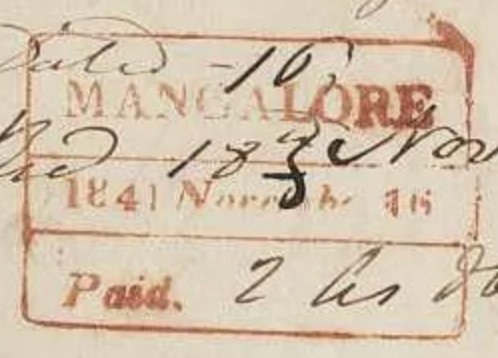 Dated 16,
MANGALORE
Recd 18 Nov
1841 November 16
Paid. 2 As